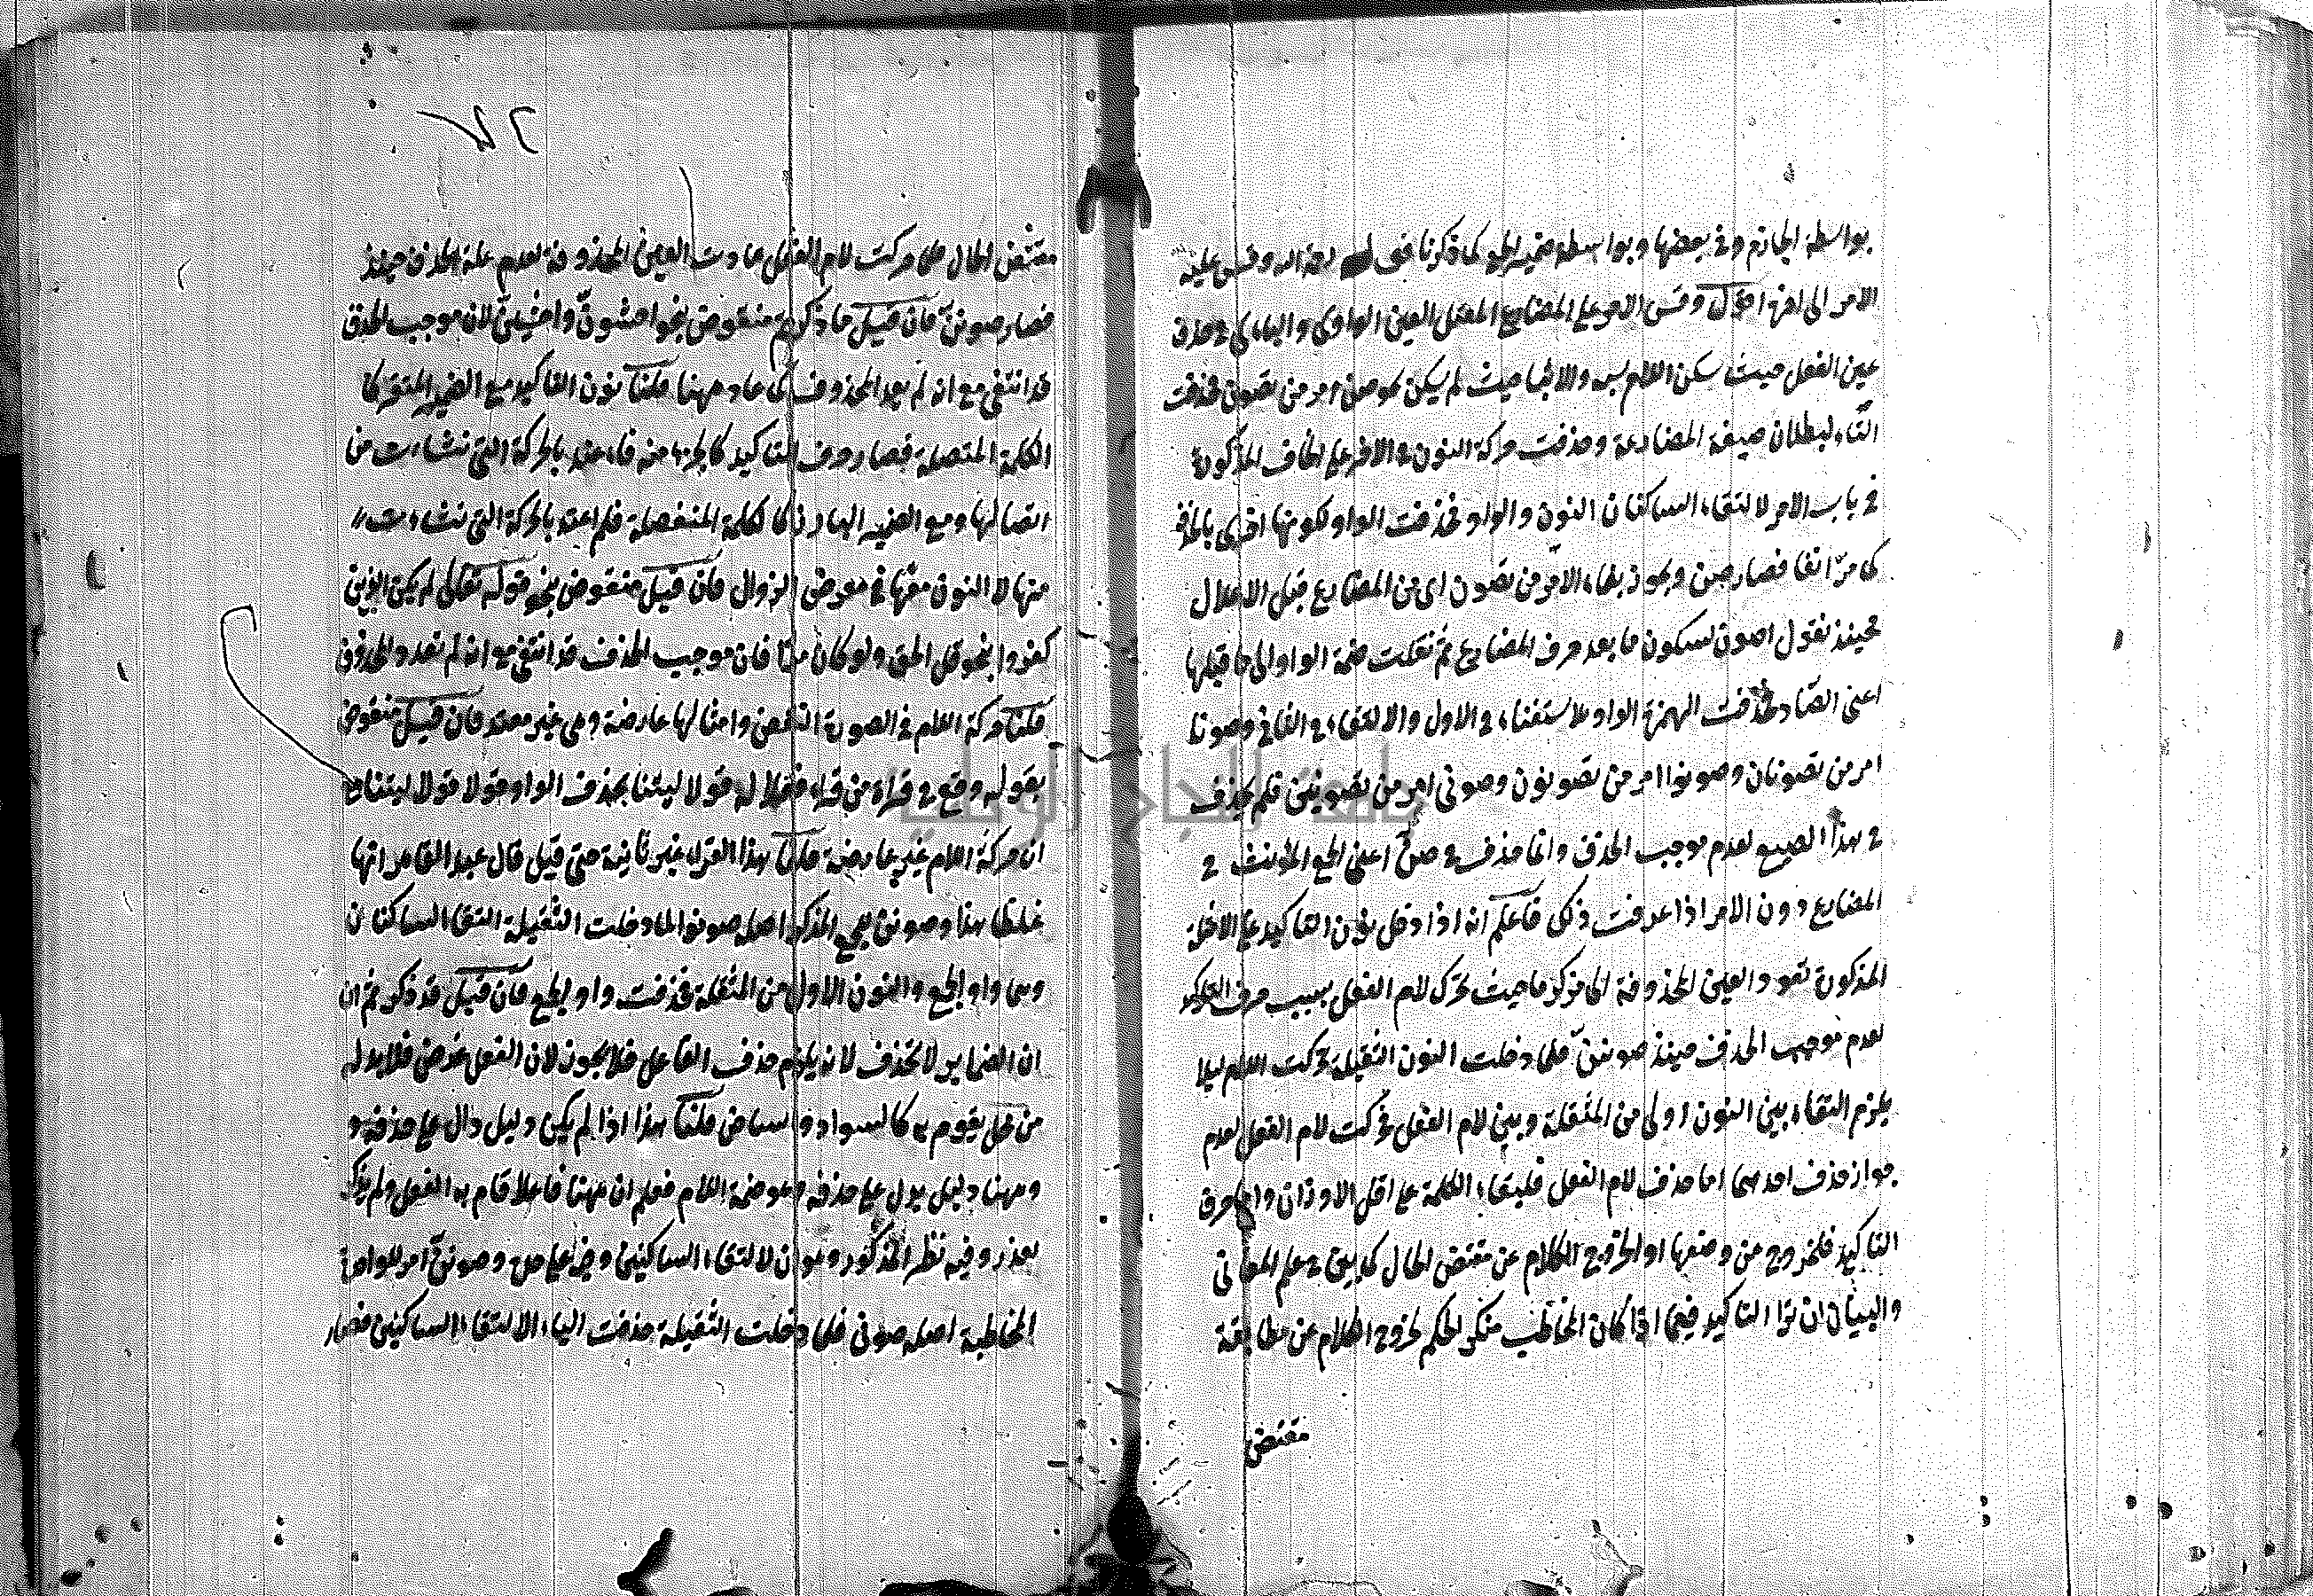 بواسطة الجازم وفي بعضها وبواسطة ضمير الجمع كما ذكرنا فى رحمة الله وقس عليه
الامر الى اخره اقول وقس الامر على المضارع المعتل العين الواوى واليائى فى حذف
عين الفعل حيث سكن اللام به والاثبات حيث لم يكن نحو صن امر من تصون فحذفت
التاء لبطلان صيغة المضارعة وحذفت حركة النون فى الاخر على المذكورة
فى باب الامر لالتقاء الساكنان النون والواو فحذفت الواو لكونها احرى بالحذف
كما مرّ انفا فصار صن ويجوز بناء الامر من تصون اى من المضارع قبل الاعلال
فحينئذ نقول اصون لسكون ما بعد حرف المضارع ثم نقلت ضمة الواو الى ما قبلها
اعنى الصّاد فحذفت الهمزة الواو للاستغناء فى الاول والالتقاء فى الثانى وصونا
امر من تصونان وصونوا امر من تصونون وصونى امر من تصونين فلم يحذف
فى هذا الصيغ لعدم موجب الحذف وانما حذف فى صنّ اعنى الجمع المؤنث فى
المضارع دون الامر اذا عرفت ذلك فاعلم انه اذا دخل نون التاكيد على الامثلة
المذكورة تعود العين المحذوفة الى مركزها حيث تحرك لام الفعل بسبب حرف التاكيد
لعدم موجب الحذف حينئذ صوننّ فلما دخلت النون الثقيلة حركت اللام ليلا
يلزم التقاء بين النون اولى من المثقلة وبين لام الفعل فحركت لام الفعل لعدم
جواز حذف احدهما اما حذف لام الفعل فلبقاء الكلمة على اقل الاوزان واما حرف
التاكيد فلخروج من وضعها او لخروج الكلام عن مقتضى الحال كما بين فى علم المعانى
والبيان ان ترا التاكيد فيما اذا كان المخاطب منكر الحكم لخروج الكلام عن مطابقة
مقتضى
مقتضى الحال فلما حركت لام الفعل عادت العين المحذوفة لعدم علة الحذف حينئذ
فصار صوننّ فان قيل ما ذكرتم منقوض بنحو اخشونّ واخشينّ لان موجب الحذف
قد انتفى مع ان لم يعد المحذوف كما عاد ههنا قلنا نون التاكيد مع الضمير المستتر كا
الكلمة المتصلة فصار حرف التاكيد كالجزء منه فاعتد بالحركة التى نشاءت من
اتصالها ومع الضمير البارز كا لكلمة المنفصلة فلم اعتد بالحركة التى نشاءت
منها لا النون معها فى معرض الزوال فان قيل منقوض بنحو قوله تعالى لم يكن الذين
كفروا بنحو قل الحق ولو كان فان موجب الحذف قد انتفى مع انه لم تعد والمحذوف
قلنا حركة اللام فى الصورة النقض وامثالها عارضة وهى غير معتد فان قيل منقوض
بقوله وقع فى قراءة من قراء فقلا له قولا ليتنا بحذف الواو قولا قولا ليتنا مع
ان حركة اللام غير عارضة قلنا هذا القراء غير ثابتة حتى قيل قال عبد القاهر انها
غلطا هذا وصوننّ للجمع المذكر اصله صونوا لما دخلت الثقيلة التقا الساكنان
وهما واو الجمع والنون الاول من المثقلة فحذفت واو الجمع فان قيل قد ذكر ثم ان
ان الضماير لا تحذف لانه يلزم حذف الفاعل فلا يجوز لان الفعل عرض فلا بد له
من محل يقوم به كالسواد والبياض قلنا هذا اذا لم يكن دليل دال على حذفه و
وههنا دليل يدل على حذفه وهو ضمة اللام فعلم ان ههنا فاعلا قام به الفعل ولم يذكر
لعذر وفيه نظر المذكور وهو ان لالتقاء الساكنين وصوننّ امر للواحدة
المخاطبة اصله صونى فلما دخلت الثقيلة حذفت الياء لالتقاء الساكنين فصار